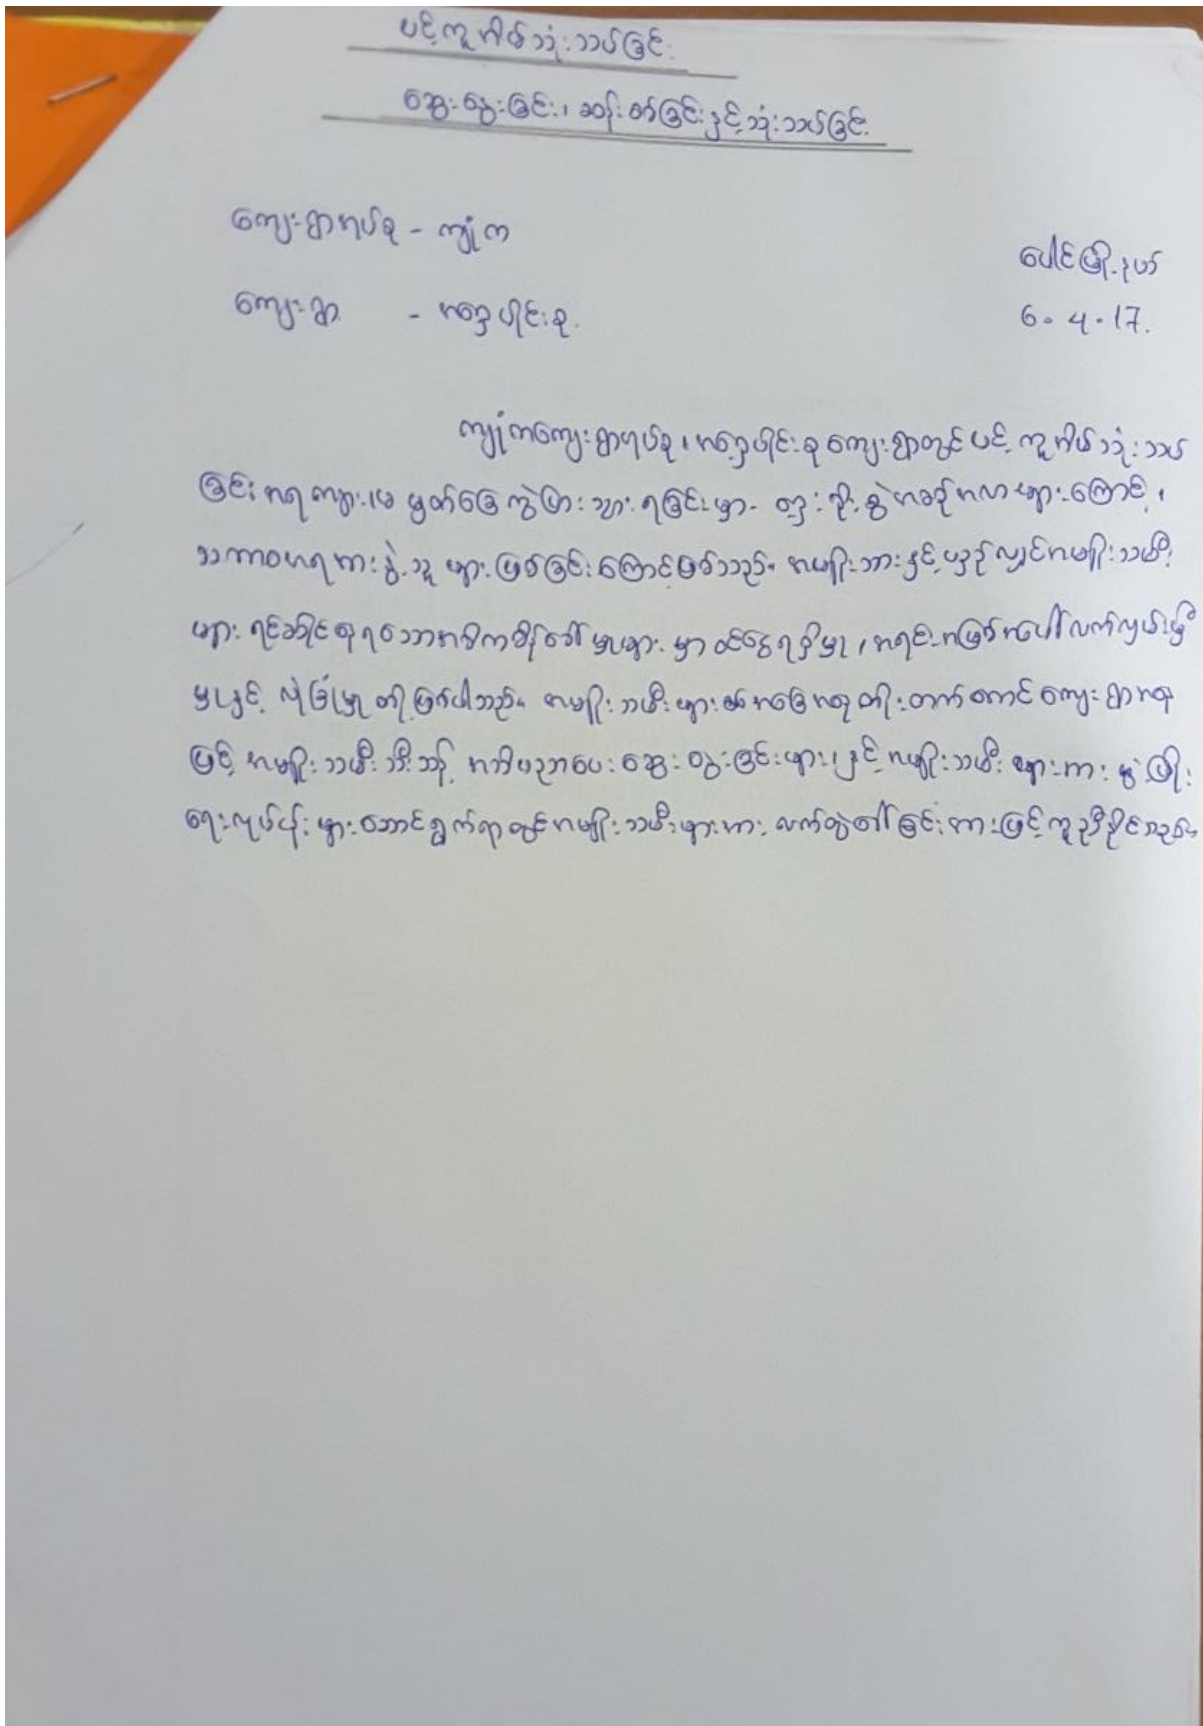 ပင့်ကူအိမ်သုံးသပ်ခြင်း
ဆွေးနွေးခြင်း၊ ဆန်းစစ်ခြင်းနှင့်သုံးသပ်ခြင်း
ကျေးရွာအုပ်စု - ကျုံက
ပေါင်မြို့နယ်
ကျေးရွာ - အရှေ့ပိုင်းစု
6.4.17.
ကျုံကကျေးရွာအုပ်စု၊ အရှေ့ပိုင်းစုကျေးရွာတွင်ပင့်ကူအိမ်သုံးသပ်
ခြင်းအရ ကျား၊မ မှတ်ခြေကွဲပြားသွားရခြင်းမှာ- ထုံးစွဲအစဉ်အလာများကြောင့်၊
သဘာဝအရအားနွဲ့သူများဖြစ်ခြင်းကြောင့်ဖြစ်သည်။ အမျိုးသားနှင့်ယှဉ်လျှင်အမျိုးသမီး
များ ရင်ဆိုင်ရသောအဓိကစိန်ခေါ်မှုများမှာ ဝင်ငွေရရှိမှု၊ အရင်းအမြစ်အပေါ်လက်လှမ်းမှီ
မှုနှင့် လုံခြုံမှုတို့ဖြစ်ပါသည်။ အမျိုးသမီးများ၏အခြေအနေတိုးတက်အောင်ကျေးရွာအနေ
ဖြင့် အမျိုးသမီးသီးသန့် အသိပညာပေးဆွေးနွေးခြင်းများ၊ နှင့် အမျိုးသမီးများအား ဖွံ့ဖြိုး
ရေးလုပ်ငန်းများဆောင်ရွက်ရာတွင်အမျိုးသမီးများအား လက်တွဲခေါ်ခြင်းအားဖြင့်ကူညီနိုင်သည်။